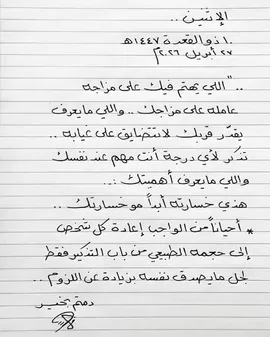 الإثنين ..
١٠ ذو القعدة ١٤٤٧هـ
٢٧ أبريل ٢٠٢٦م
.. " اللي يهتم فيك على مزاجه
عامله على مزاجك .. واللي مايعرف
يقدّر قربك لاتتضايق على غيابه ..
تذكر لأي درجة أنت مهم عند نفسك
واللي مايعرف أهميتك ..
هذي خسارته أبداً مو خسارتك ..
* أحياناً من الواجب إعادة كل شخص
إلى حجمه الطبيعي من باب التذكير فقط
لجل مايصدق نفسه بزيادة عن اللزوم ..
دمتم بخير